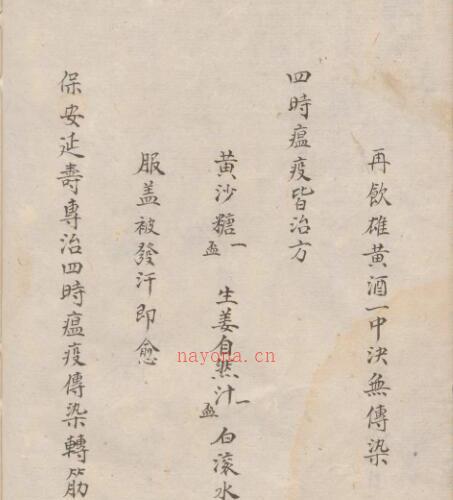 再飲雄黄酒一中決無傳染
四時瘟疫皆治方
黄沙糖一盃 生姜自然汁一盃 白滚水
服盖被發汗即愈
保安延壽專治四時瘟疫傳染轉筋
nayona.cn